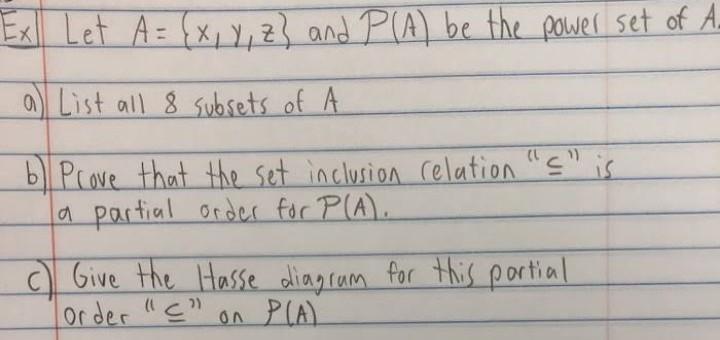 Ex Let A = {x, y, z} and P(A) be the power set of A.
a) List all 8 subsets of A
b) Prove that the set inclusion relation "⊆" is
a partial order for P(A).
c) Give the Hasse diagram for this partial
order "⊆" on P(A)